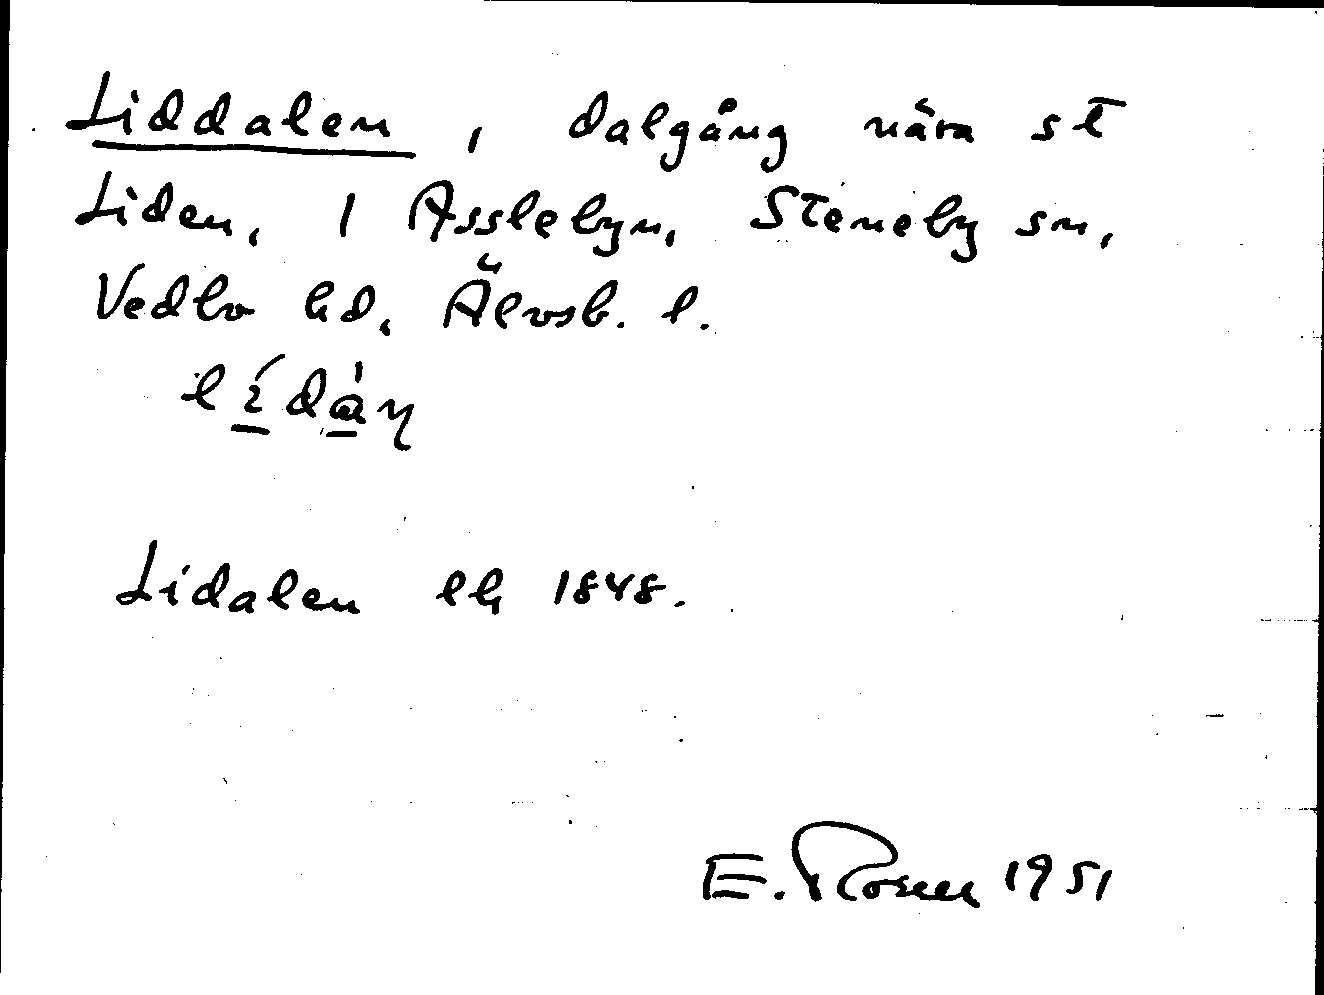 Liddalen, dalgång nära st
Liden, 1 Asslebyn, Steneby sn,
Vedbo hd, Älvsb. l.
Lidalen lh 1848.
E. Rosen 1951